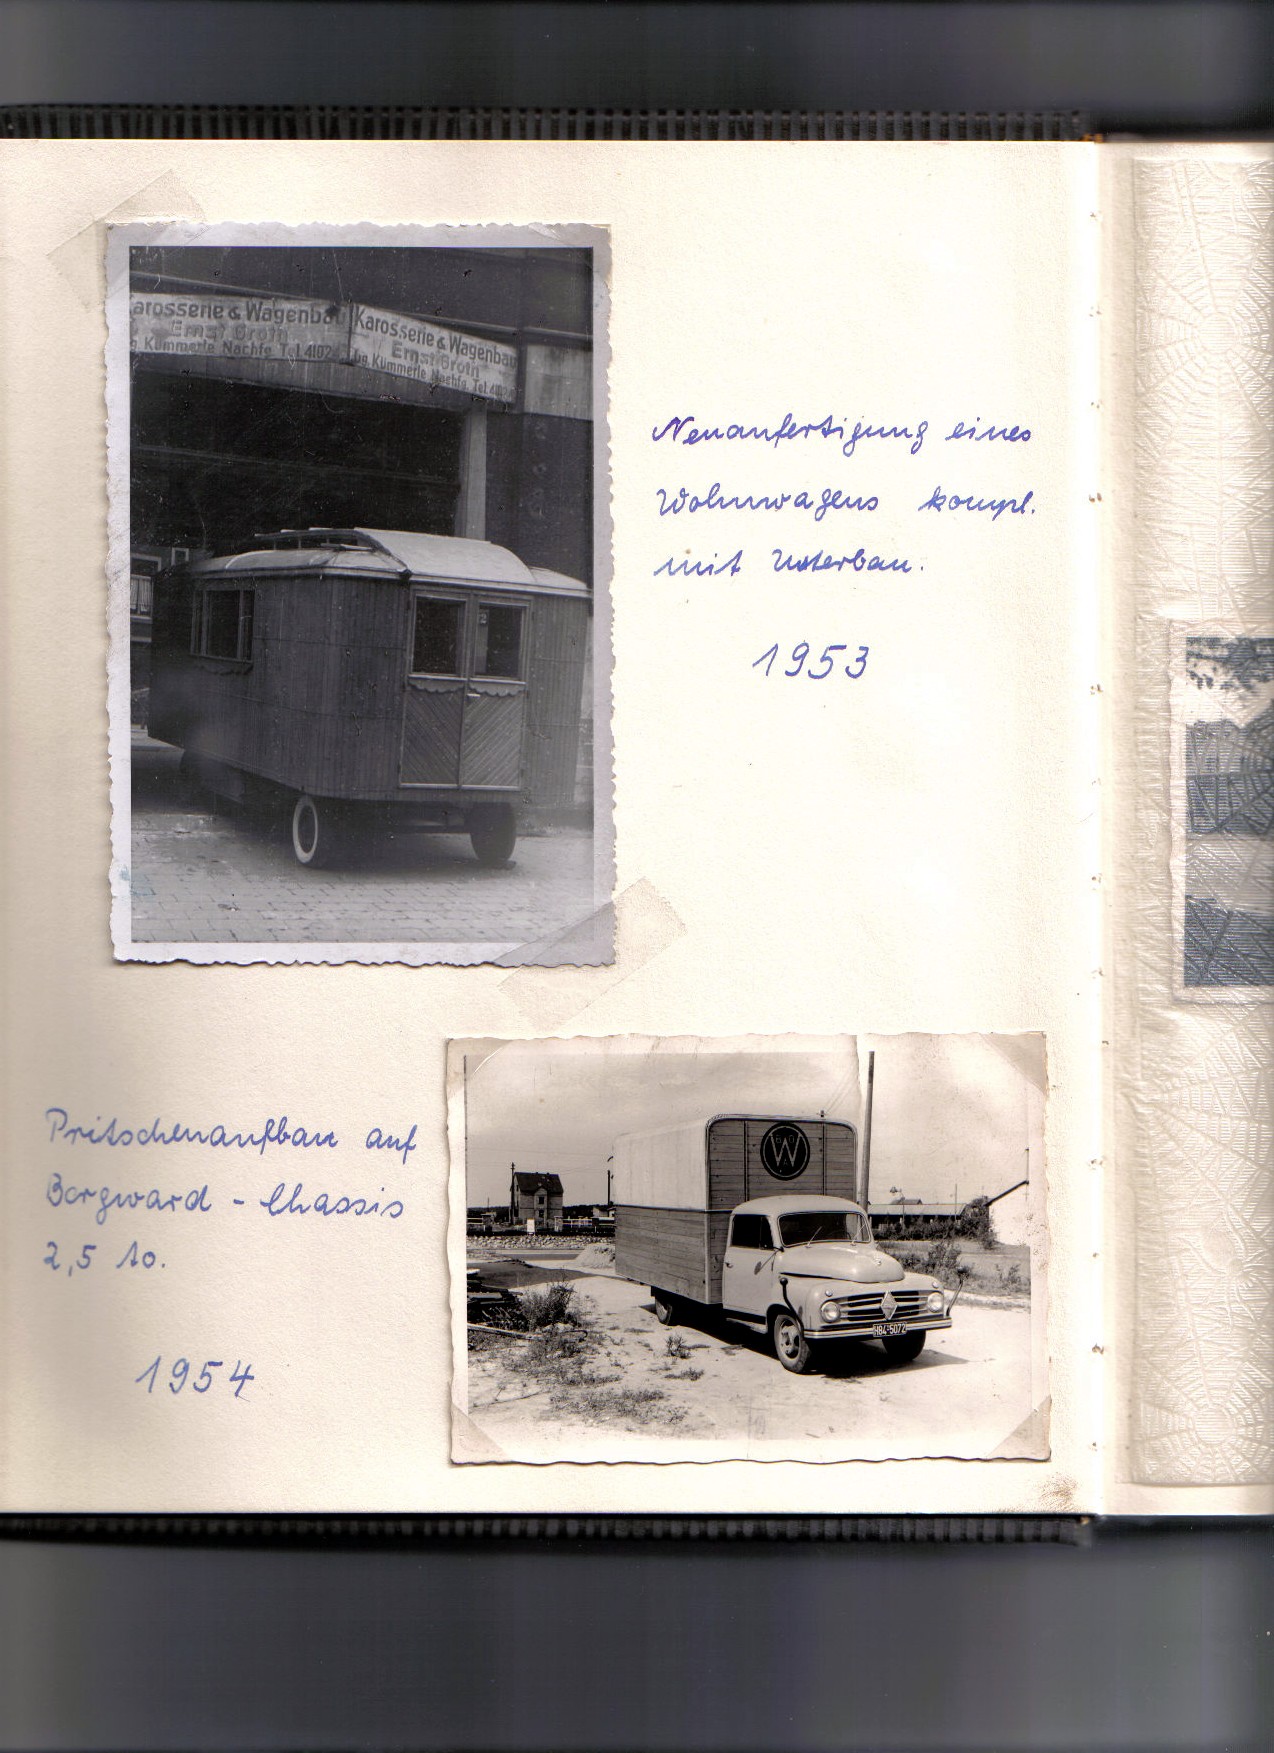 Karosserie & Wagenbau
Ernst Groth
g. Kümmerle Nachfg. Tel. 4102
Karosserie & Wagenbau
Ernst Groth
Kümmerle Nachfg. Tel.
Neuanfertigung eines
Wohnwagens kompl.
mit Unterbau.
1953
Pritschenaufbau auf
Borgward - Chassis
2,5 to.
1954
W
HB4-5072